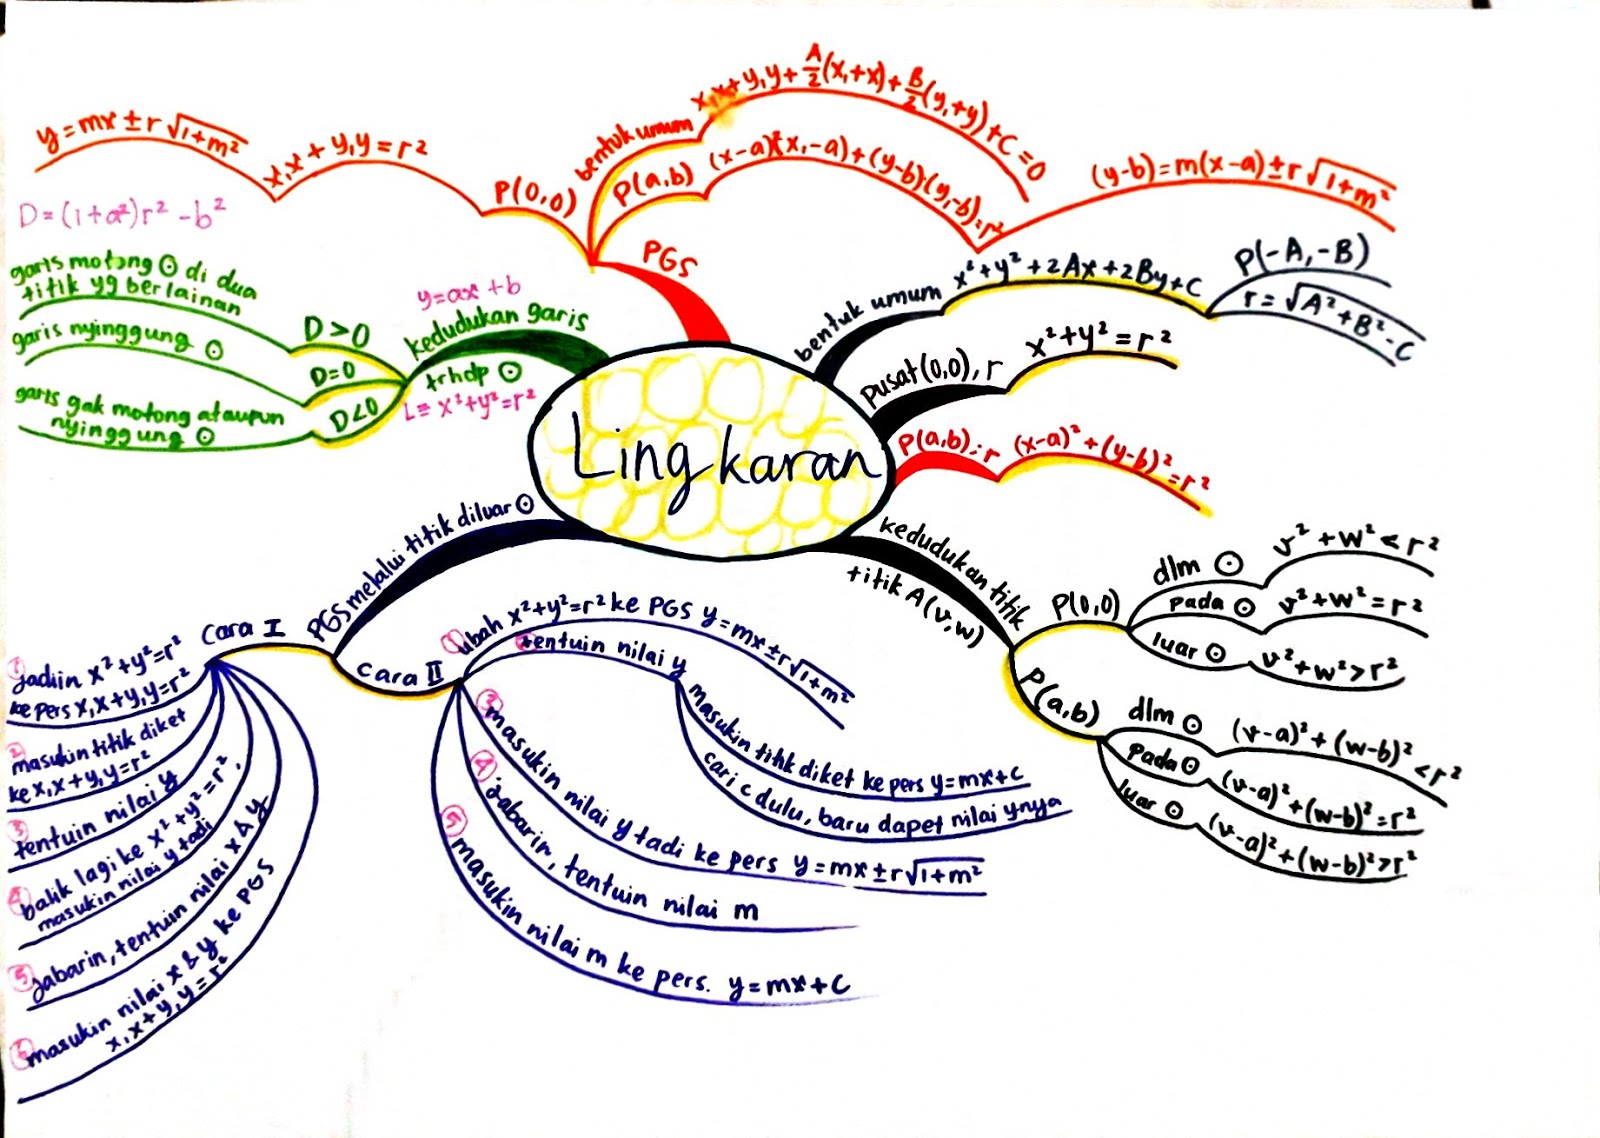 Lingkaran
PGS
P(0,0)
x₁x + y₁y = r²
y = mx ± r√1+m²
bentuk umum
x₁x + y₁y + A/2(x₁+x) + B/2(y₁+y) + C = 0
P(a,b)
(x-a)(x₁-a) + (y-b)(y₁-b) = r²
(y-b) = m(x-a) ± r√1+m²
bentuk umum
x² + y² + 2Ax + 2By + C
P(-A, -B)
r = √A² + B² - C
pusat (0,0), r
x² + y² = r²
P(a,b) ; r
(x-a)² + (y-b)² = r²
kedudukan titik
titik A (v, w)
P(0,0)
dlm ⊙
v² + w² < r²
pada ⊙
v² + w² = r²
luar ⊙
v² + w² > r²
P(a,b)
dlm ⊙
(v-a)² + (w-b)² < r²
pada ⊙
(v-a)² + (w-b)² = r²
luar ⊙
(v-a)² + (w-b)² > r²
D = (1+a²) r² - b²
y = ax + b
kedudukan garis
trhdp ⊙
L ≡ x² + y² = r²
D > 0
garis motong ⊙ di dua
titik yg berlainan
D = 0
garis nyinggung ⊙
D < 0
garis gak motong ataupun
nyinggung ⊙
PGS melalui titik diluar ⊙
cara I
① jadiin x² + y² = r²
ke pers x₁x + y₁y = r²
② masukin titik diket
ke x₁x + y₁y = r²
③ tentuin nilai y
④ balik lagi ke x² + y² = r²,
masukin nilai y tadi
⑤ jabarin, tentuin nilai x & y
⑥ masukin nilai x & y ke PGS
x₁x + y₁y = r²
cara II
① ubah x² + y² = r² ke PGS y = mx ± r√1+m²
② tentuin nilai y
masukin titik diket ke pers y = mx + c
cari c dulu, baru dapet nilai y nya
③ masukin nilai y tadi ke pers y = mx ± r√1+m²
④ jabarin, tentuin nilai m
⑤ masukin nilai m ke pers. y = mx + c